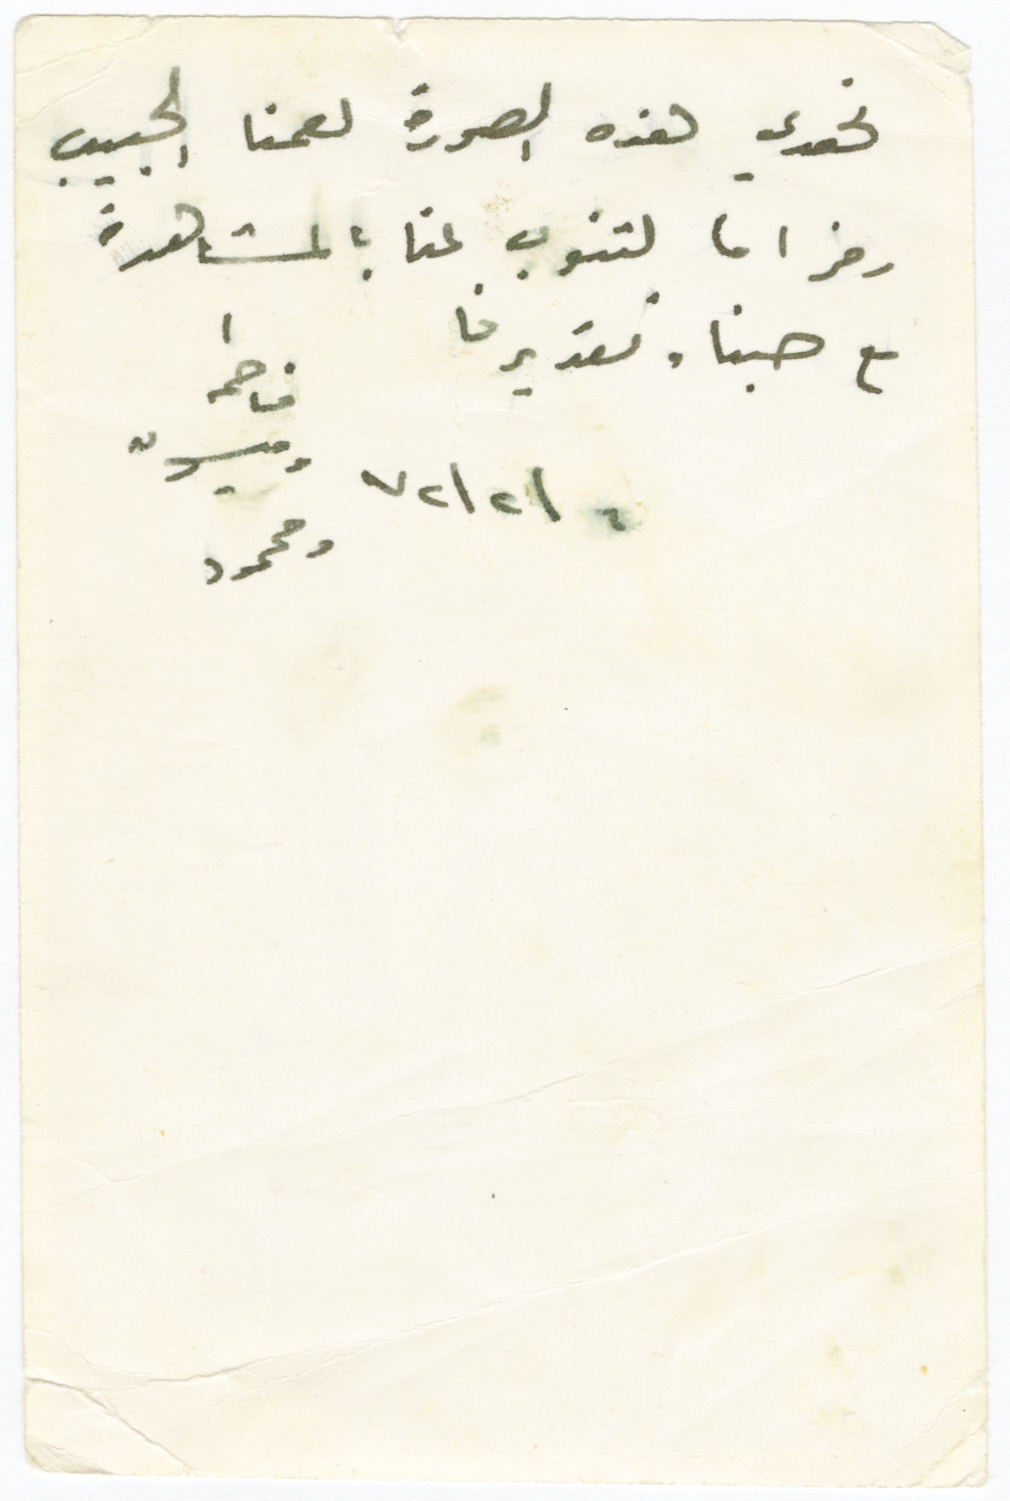 نهدي هذه الصورة لعمنا الحبيب
رمز اما لتنوب عنا بالمشاهدة
مع حبنا وتقديرنا
فاطمة
وميسون
ومحمود
٧٢/٢/